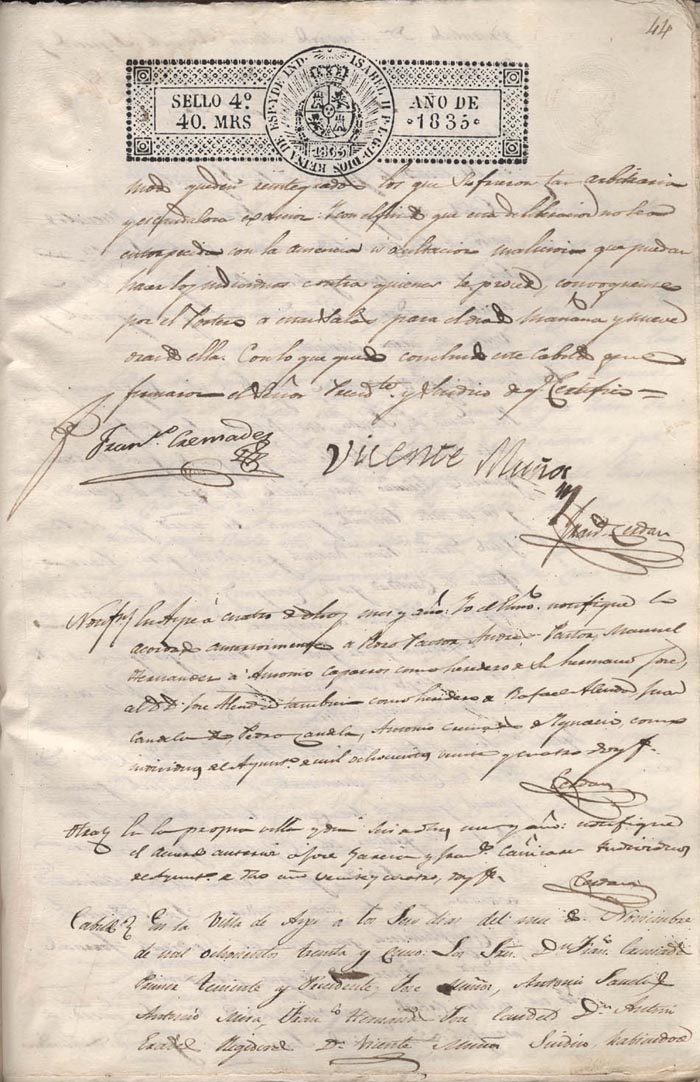 44
SELLO 4º
40. MRS
ISABEL II P.L.G.D. DIOS REINA DE ESP. Y DE IND.
1835
AÑO DE
1835
queden reintegrados los que sufrieron tan arbitraria
y escandalosa y con el fin de que esta deliberacion no se
entorpezca con la ausencia u ocultacion maliciosa que puedan
hacer los individuos contra quienes se procede, convoquense
por el Portero a esta Sala para el dia de mañana y nueve
de ella. Con lo que quedó concluido este Cabildo que
firmaron el Señor Presidte y Sindico de q. Certifico =
Franco Cremades
Vicente Muñoz
Cerdan
En Aspe a cuatro de dhos mes y año: Yo el Essno. notifique lo
acordado anteriormente a Pedro Pastor Andres Pastor, Manuel
Hernandez a Antonio Caparros como heredero de su hermano José,
al D. D. José tambien como heredero de Rafael
Candela de Pedro Candela, Antonio de Ignacio, como
individuos del Ayuntº de mil ochocientos veinte y cuatro doy fe.
Cerdan
Otra En la propia villa y dia mes y año: notifique
el acuerdo anterior a José Garcia y Individuos
del Ayuntº de dho año veinte y cuatro, doy fe.
Cerdan
Cabildo En la Villa de Aspe a los dias del mes de Diciembre
de mil ochocientos treinta y cinco: Los Sres. Dn Franco Cremades
Primer Teniente y Presidente, José Muñoz, Antonio
Antonio Mira, Franco Hernandez José Dn Antonio
Regidores Dn Vicente Muñoz Sindico, habiendose